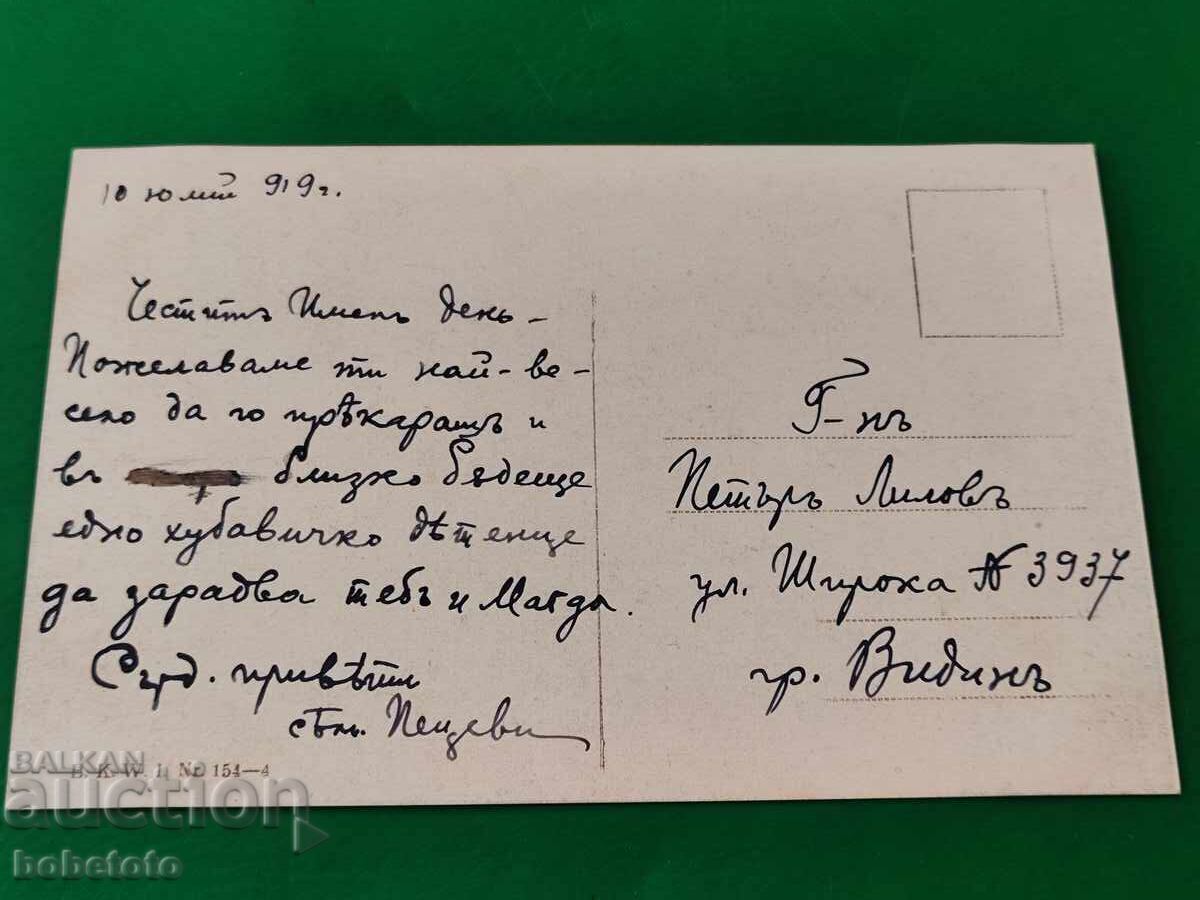 10 юлий 919 г.
Честитъ Именъ день -
Пожелаваме ти най-ве-
село да го прѣкарашъ и
въ близко бѫдеще
едно хубавичко дѣтенце
да зарадва тебъ и Магда.
Сърд. привѣти
сѣм. Пещеви
Г-нъ
Петъръ Лиловъ
ул. Широка № 3937
гр. Видинъ
B. K. W. I. Nr. 154-4
BALKAN
auction
bobetoto